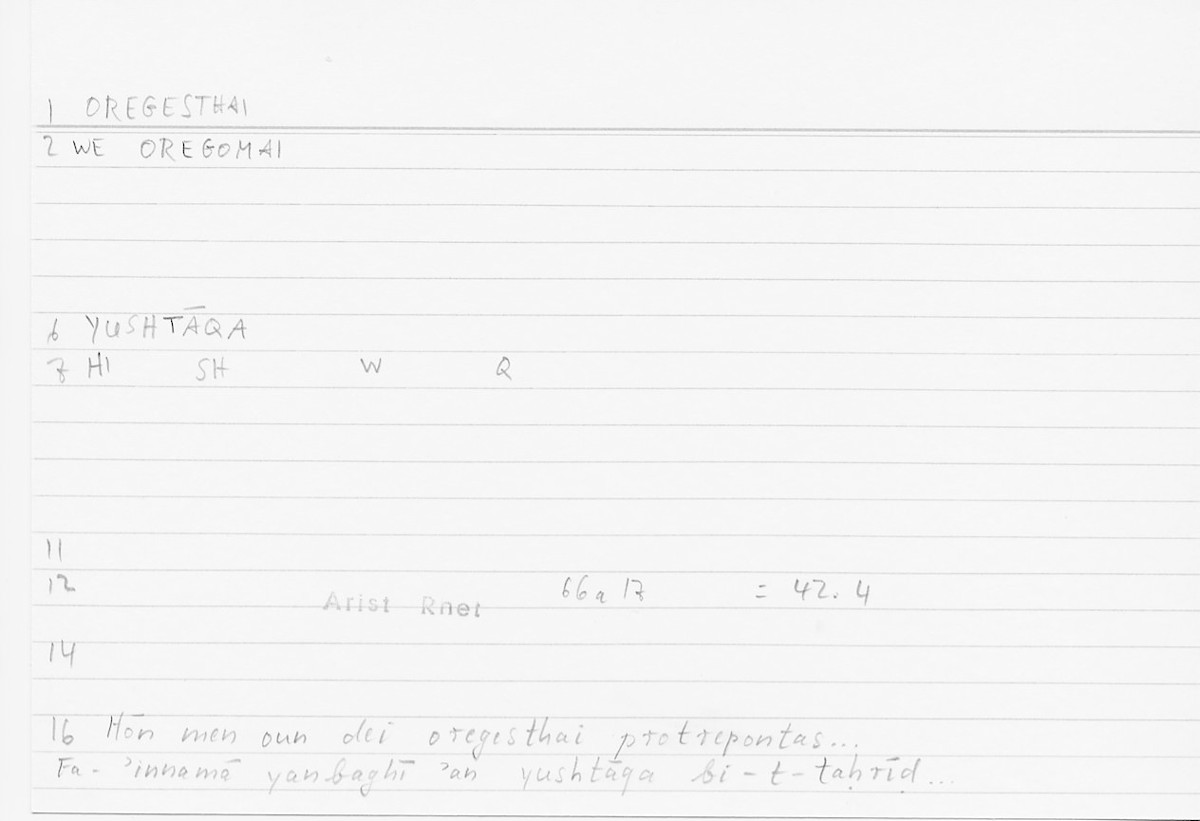 1 OREGESTHAI
2 WE OREGOMAI
6 YUSHTĀQA
7 HI SH W Q
11
12 Arist Rhet 66a 17 = 42. 4
14
16 Hōn men oun dei oregesthai protrepontas...
Fa- ʾinnamā yanbaghī ʾan yushtāqa bi-t-taḥrīḍ...